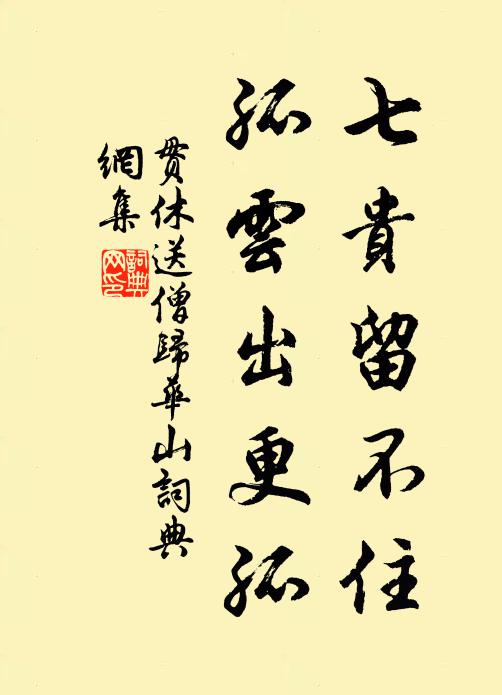 七貴留不住
孤雲出更孤
貫休送僧歸華山詞典
網集
詞典
网印